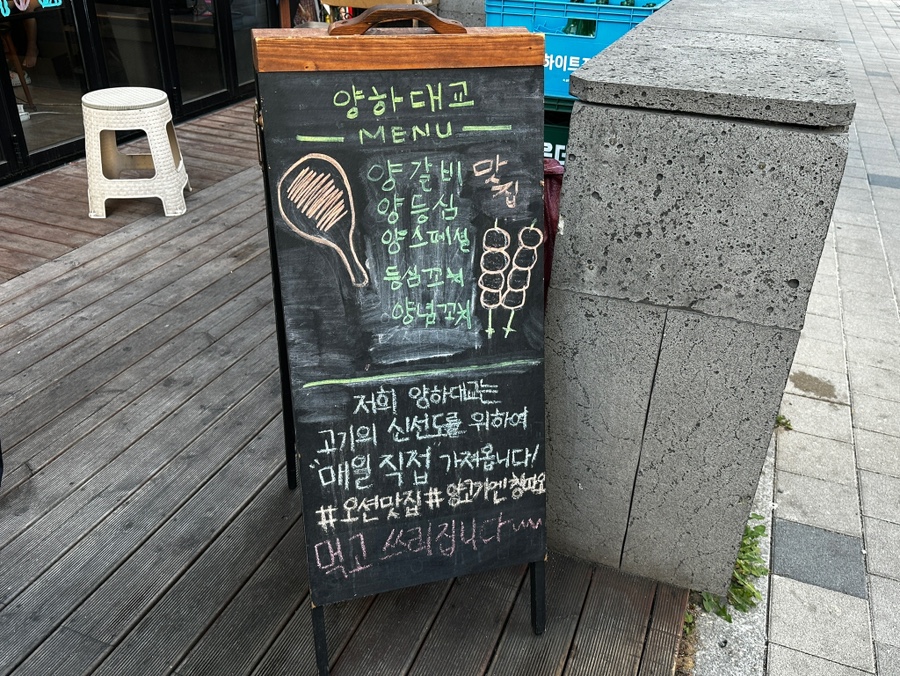 하이트진
양하대교
MENU
양갈비
맛집
양등심
양스페셜
등심꼬치
양념꼬치
저희 양하대교는
고기의 신선도를 위하여
"매일 직접" 가져옵니다!
#오션맛집 #양고기엔칭따오
먹고 쓰러집니다~~